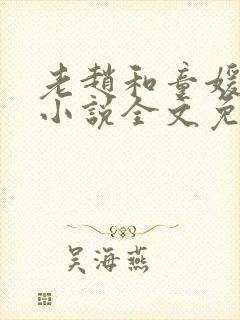 老趙和童媛
小說全文免
吳海燕